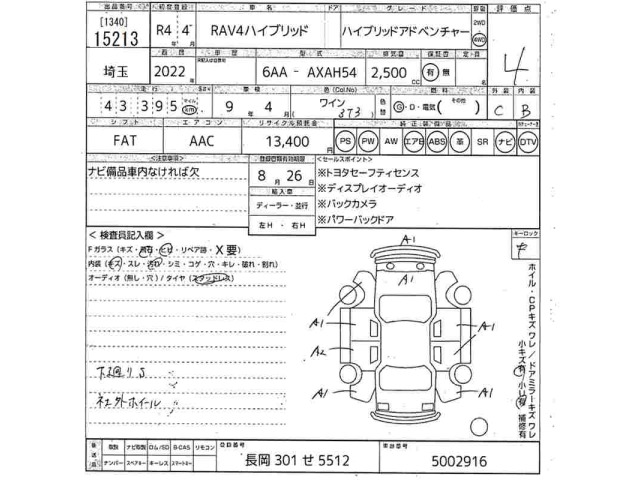 出品番号 初度登録 車名 ドア グレード 駆動 評価点
[1340]
15213
R4 年 4 月
RAV4ハイブリッド
ハイブリッドアドベンチャー
2WD
4WD
4
埼玉
2022
6AA － AXAH54
2,500 CC
有 無
走行 車検 色(Col.No) 燃料 外装 内装
43395 マイル km
9 年 4 月
ワイン 3T3
G・D・電気 (その他)
C B
シフト エアコン リサイクル預託金 純正装備品
FAT
AAC
13,400
PS PW AW エアB ABS 革 SR ナビ DTV
<注意事項>
ナビ備品車内なければ欠
登録書類有効期限
8 月 26 日
輸入車
ディーラー・並行
左H ・ 右H
<セールスポイント>
※トヨタセーフティセンス
※ディスプレイオーディオ
※バックカメラ
※パワーバックドア
＜ 検査員記入欄 ＞
Fガラス (キズ・飛石・ヒビ・リペア跡・X要)
内装 (キズ・スレ・汚れ・シミ・コゲ・穴・キレ・破れ・割れ)
オーディオ (無し・穴) / タイヤ (スタッドレス)
下回りS
社外ホイール
A1
A1
A1 A1
A2 A1
A1 A1
キーロック
ホイル・CPキズワレ/ドアミラーキズワレ
小キズ有 小凹有 補修有
後送品
取説 ナビ取説 ロム/SD B-CAS リモコン
ナンバー スペアキー キーレス スマートキー
登録番号
長岡 301 せ 5512
車台番号
5002916